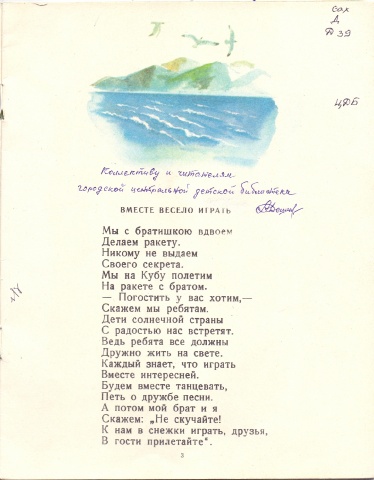 сах
Д
Д 39
ЦДБ
Коллективу и читателям
городской центральной детской библиотеки
ВМЕСТЕ ВЕСЕЛО ИГРАТЬ
Мы с братишкою вдвоем
Делаем ракету.
Никому не выдаем
Своего секрета.
Мы на Кубу полетим
На ракете с братом.
— Погостить у вас хотим,—
Скажем мы ребятам.
Дети солнечной страны
С радостью нас встретят.
Ведь ребята все должны
Дружно жить на свете.
Каждый знает, что играть
Вместе интересней.
Будем вместе танцевать,
Петь о дружбе песни.
А потом мой брат и я
Скажем: „Не скучайте!
К нам в снежки играть, друзья,
В гости прилетайте“.
3